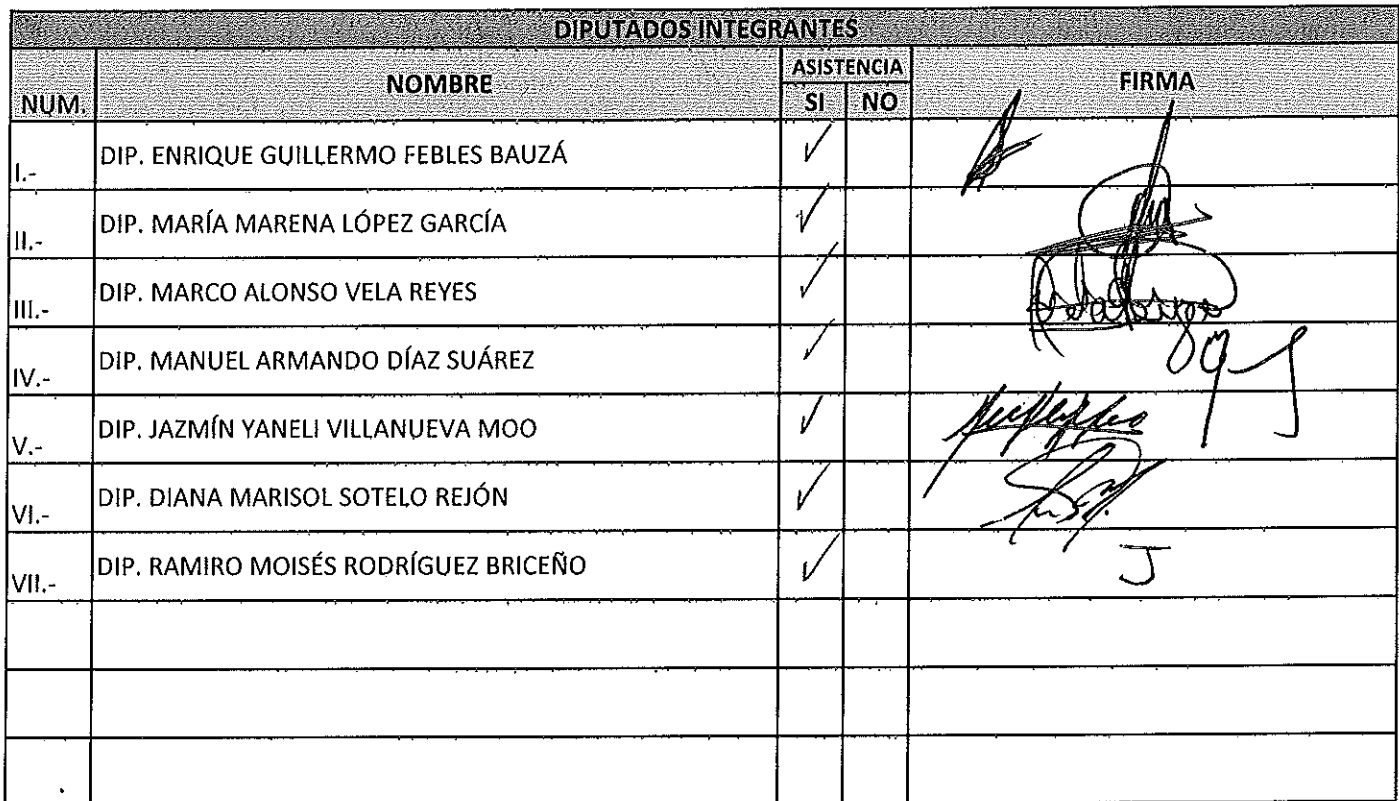 DIPUTADOS INTEGRANTES
NUM. NOMBRE ASISTENCIA FIRMA
SI NO
I.- DIP. ENRIQUE GUILLERMO FEBLES BAUZÁ ✓
II.- DIP. MARÍA MARENA LÓPEZ GARCÍA ✓
III.- DIP. MARCO ALONSO VELA REYES ✓
IV.- DIP. MANUEL ARMANDO DÍAZ SUÁREZ ✓
V.- DIP. JAZMÍN YANELI VILLANUEVA MOO ✓
VI.- DIP. DIANA MARISOL SOTELO REJÓN ✓
VII.- DIP. RAMIRO MOISÉS RODRÍGUEZ BRICEÑO ✓